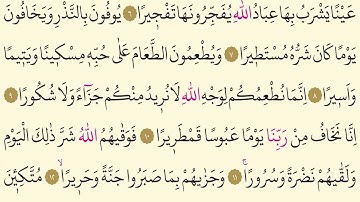 عَيْنًا يَشْرَبُ بِهَا عِبَادُ اللّٰهِ يُفَجِّرُونَهَا تَفْجِيرًا ﴿٦﴾ يُوفُونَ بِالنَّذْرِ وَيَخَافُونَ
يَوْمًا كَانَ شَرُّهُ مُسْتَطِيرًا ﴿٧﴾ وَيُطْعِمُونَ الطَّعَامَ عَلٰى حُبِّهٖ مِسْكِينًا وَيَتِيمًا
وَاَسِيرًا ﴿٨﴾ اِنَّمَا نُطْعِمُكُمْ لِوَجْهِ اللّٰهِ لَا نُرِيدُ مِنْكُمْ جَزَٓاءً وَلَا شُكُورًا ﴿٩﴾
اِنَّا نَخَافُ مِنْ رَبِّنَا يَوْمًا عَبُوسًا قَمْطَرِيرًا ﴿١٠﴾ فَوَقٰيهُمُ اللّٰهُ شَرَّ ذٰلِكَ الْيَوْمِ
وَلَقّٰيهُمْ نَضْرَةً وَسُرُورًا ﴿١١﴾ وَجَزٰيهُمْ بِمَا صَبَرُوا جَنَّةً وَحَرِيرًا ﴿١٢﴾ مُتَّكِـِٔينَ